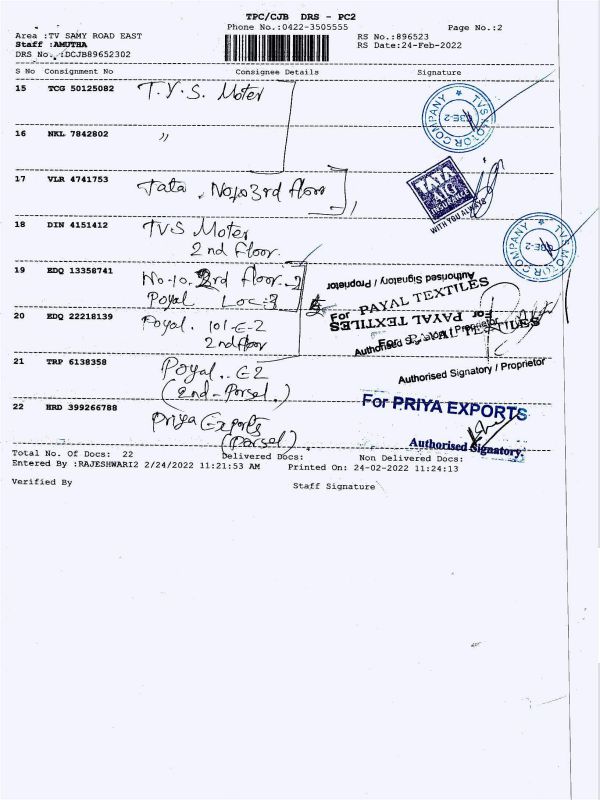 TPC/CJB DRS - PC2
Phone No.:0422-3505555
Page No.:2
Area :TV SAMY ROAD EAST
Staff :AMUTHA
DRS No.:DCJB89652302
RS No.:896523
RS Date:24-Feb-2022
S No Consignment No Consignee Details Signature
15 TCG 50125082 T.V.S. Moter
TVS MOTOR COMPANY
CBE-2
16 NKL 7842802 〃
17 VLR 4741753 Tata, No10 3rd floor
TATA AIG
INSURANCE
WITH YOU ALWAYS
18 DIN 4151412 TVS Moter
2nd Floor.
TVS MOTOR COMPANY
CBE-2
19 EDQ 13358741 No-10. 3rd floor-2
Poyal Loc-3
Authorised Signatory / Proprietor
For PAYAL TEXTILES
20 EDQ 22218139 Poyal. 101-E-2
2nd floor
For PAYAL TEXTILES
For PAYAL TEXTILES
Authorised Signatory / Proprietor
21 TRP 6138358 Poyal.. E2
(2nd-Parsel.)
Authorised Signatory / Proprietor
22 HRD 399266788 Priya Exports
(Parsel).
For PRIYA EXPORTS
Authorised Signatory.
Total No. Of Docs: 22 Delivered Docs: Non Delivered Docs:
Entered By :RAJESHWARI2 2/24/2022 11:21:53 AM Printed On: 24-02-2022 11:24:13
Verified By Staff Signature